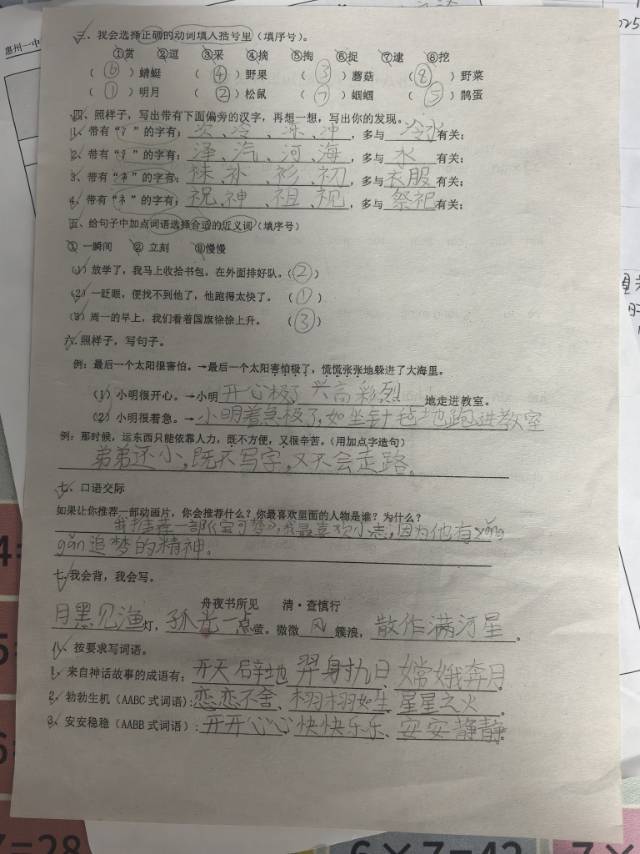 惠州一中
三、我会选择正确的动词填入括号里（填序号）。
①赏 ②逗 ③采 ④摘 ⑤掏 ⑥捉 ⑦逮 ⑧挖
（ 6 ）蜻蜓 （ 4 ）野果 （ 3 ）蘑菇 （ 8 ）野菜
（ 1 ）明月 （ 2 ）松鼠 （ 7 ）蝈蝈 （ 5 ）鹊蛋
四、照样子，写出带有下面偏旁的汉字，再想一想，写出你的发现。
1、带有“冫”的字有：次、冷、冻、冲，多与冷冰有关；
2、带有“氵”的字有：泽、汽、河、海，多与水有关；
3、带有“衤”的字有：袜、补、衫、初，多与衣服有关；
4、带有“礻”的字有：祝、神、祖、视，多与祭祀有关；
五、给句子中加点词语选择合适的近义词（填序号）
① 一瞬间 ② 立刻 ③慢慢
（1）放学了，我马上收拾书包，在外面排好队。（②）
（2）一眨眼，便找不到他了，他跑得太快了。（①）
（3）周一的早上，我们看着国旗徐徐上升。（③）
六.照样子，写句子。
例：最后一个太阳很害怕。→最后一个太阳害怕极了，慌慌张张地躲进了大海里。
（1）小明很开心。→小明开心极了 兴高彩烈地走进教室。
（2）小明很着急。→小明着急极了，如坐针毡地跑进教室
例：那时候，运东西只能依靠人力，既不方便，又很辛苦。（用加点字造句）
弟弟还小，既不写字，又不会走路。
七、口语交际
如果让你推荐一部动画片，你会推荐什么？你最喜欢里面的人物是谁？为什么？
我推荐一部《宝可梦》，我最喜欢小志，因为他有yǒng
gǎn追梦的精神。
七.我会背，我会写。
舟夜书所见 清·查慎行
月黑见渔灯，孤光一点萤。微微风簇浪，散作满河星。
八、按要求写词语。
1、来自神话故事的成语有：开天辟地 羿射九日、嫦娥奔月
2、勃勃生机（AABC式词语）：恋恋不舍、栩栩如生 星星之火
3、安安稳稳（AABB式词语）：开开心心 快快乐乐、安安静静。
7=28
6×7=42
7×